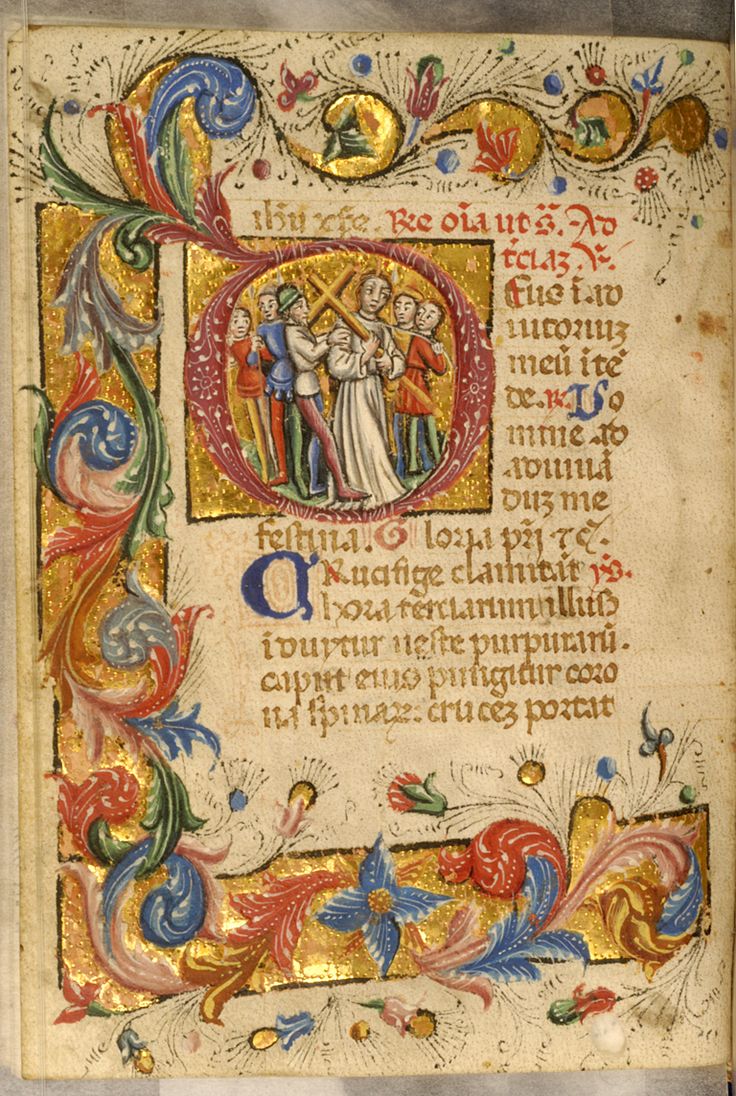 ih̄u xp̄e. Re oīa ut s̄. Ad
t̄ciaz. V̄.
DEus ī ad
iutoriuz
meū ītē
de. R. Do
mine ad
adiuuā
duz me
festina. Gloria pr̄i ⁊c̄.
CRucifige clamitāt ys̄.
hora terciarum illusꝰ
iduytur ueste purpurarū.
caput eius pungitur coro
na spinaꝝ: crucez portat